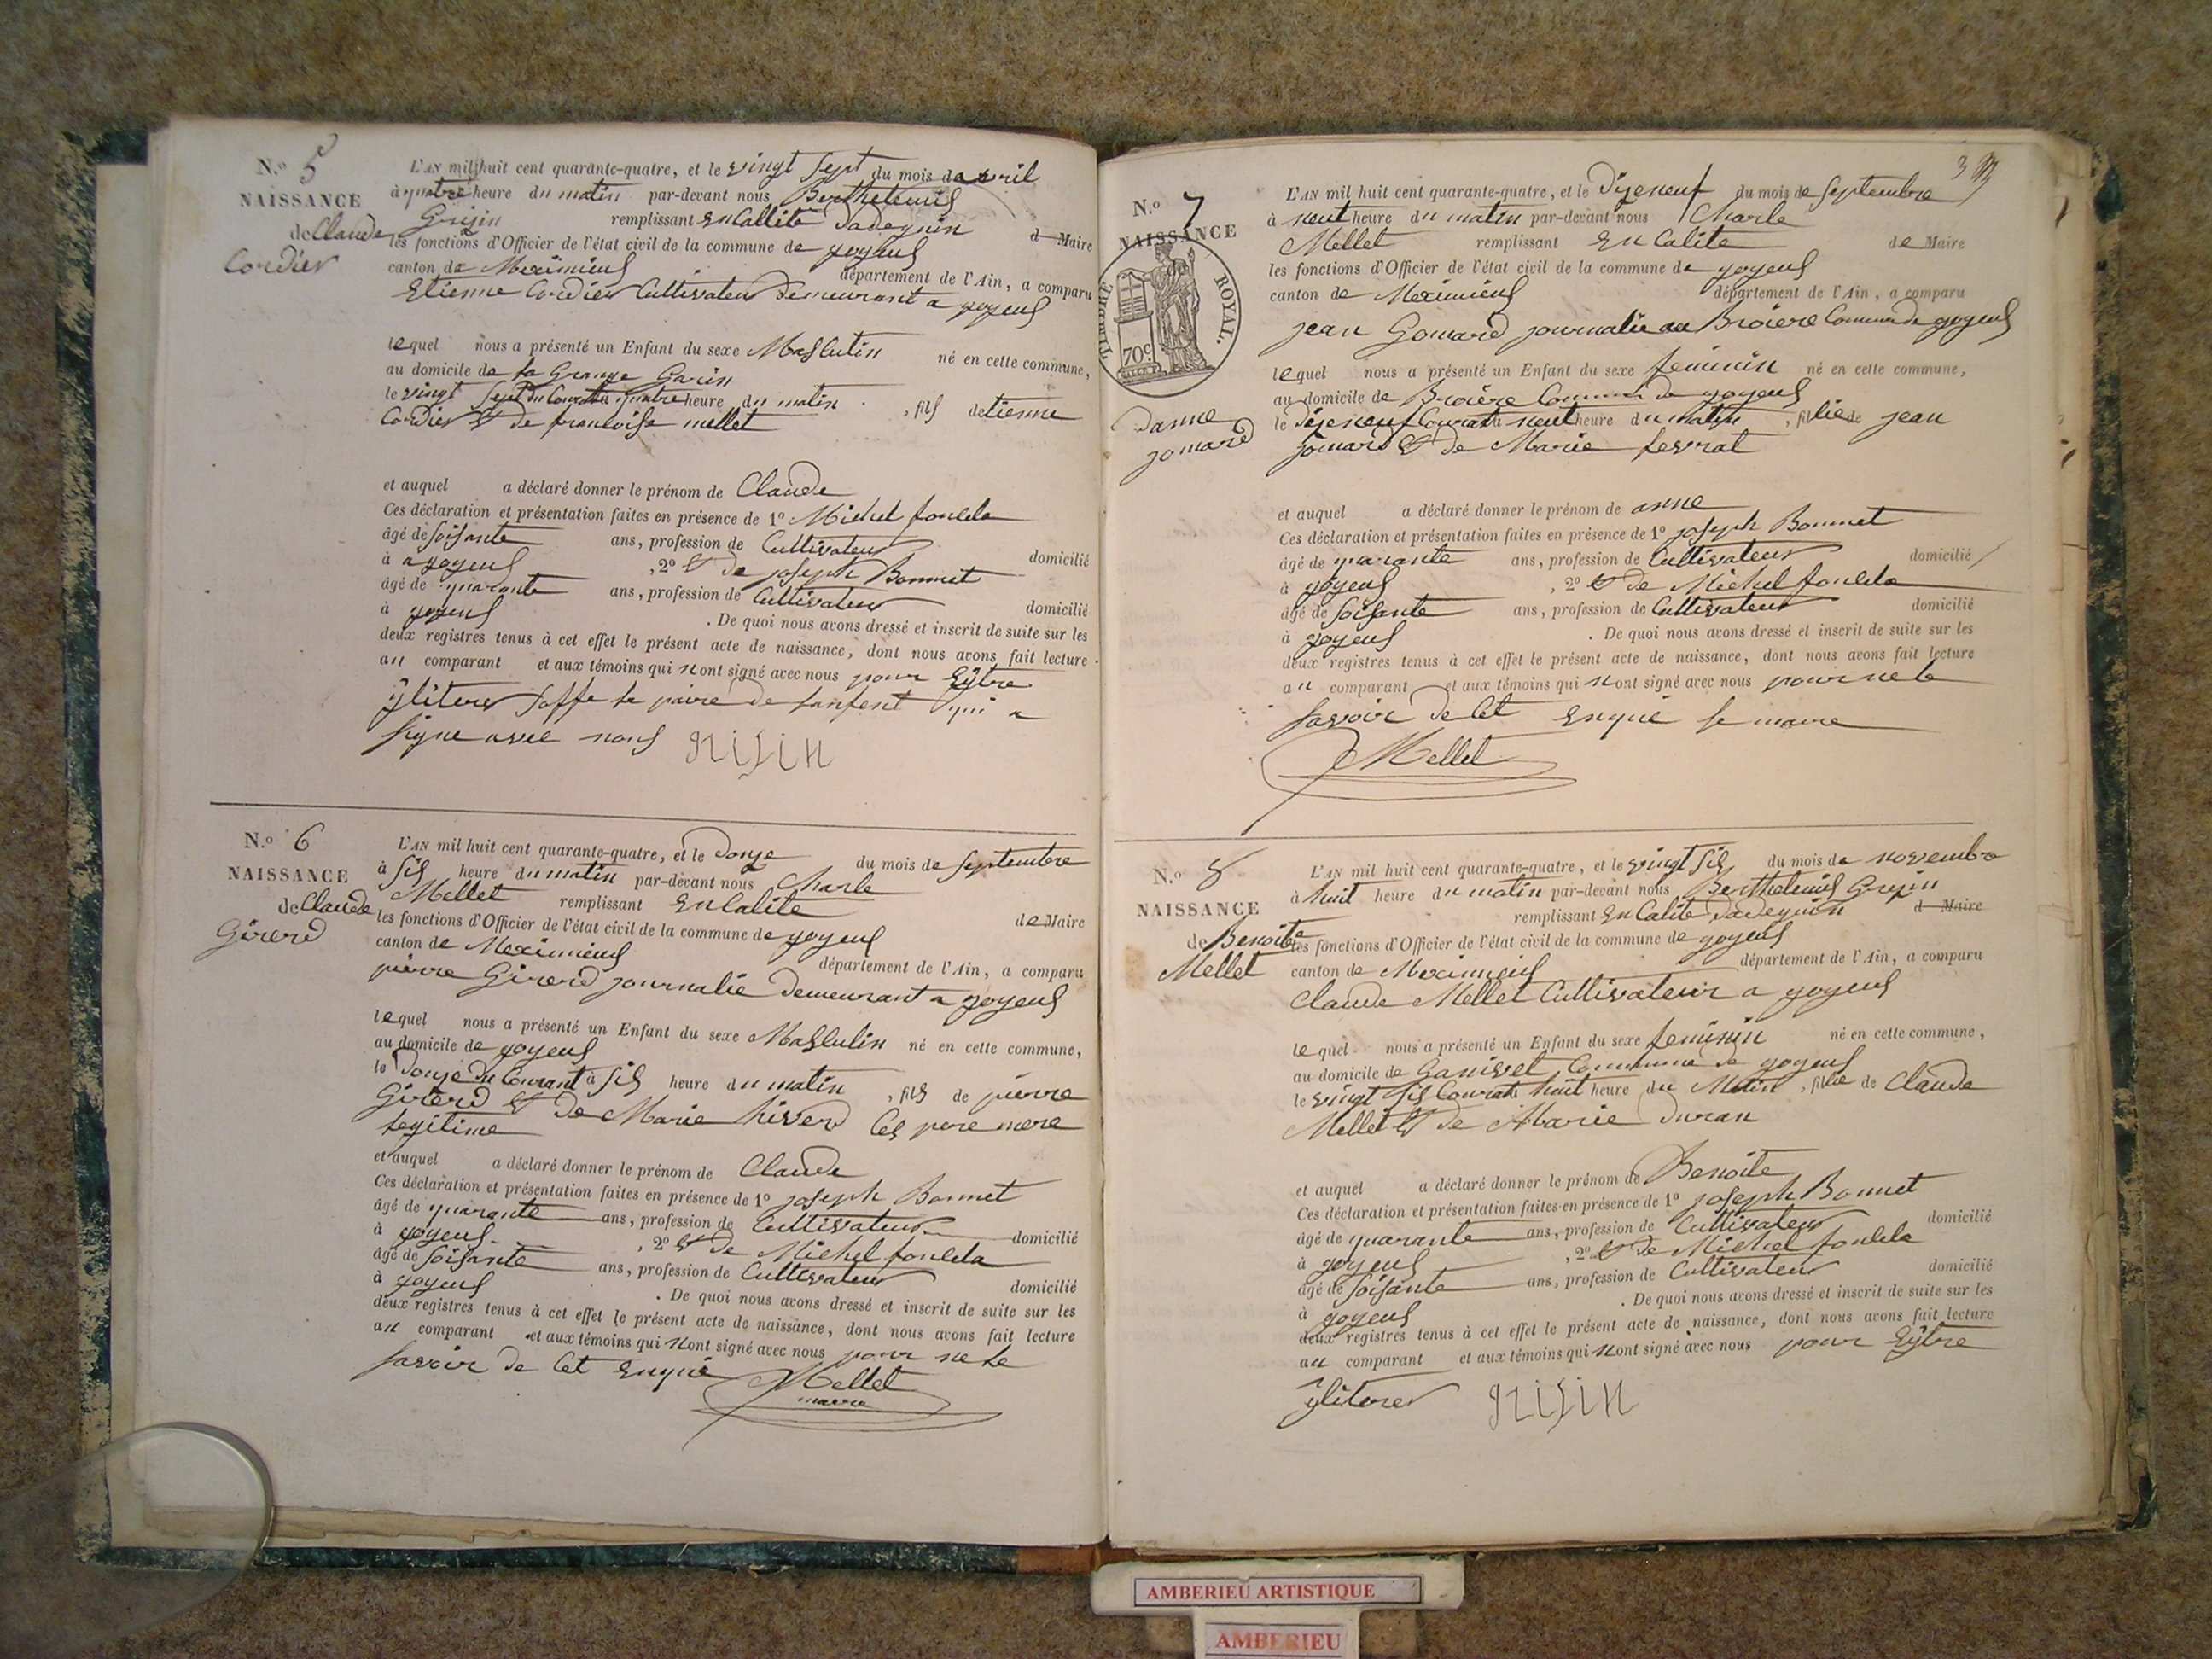 N.º 5
NAISSANCE
de Claude
Cordier
L'AN mil huit cent quarante-quatre, et le vingt sept du mois de avril
à quatre heure du matin par-devant nous Berthelemis
Grisin remplissant en Calité dadeguin d Maire
les fonctions d'Officier de l'état civil de la commune de joyeus
canton de Meximieus département de l'Ain, a comparu
Etienne Cordier Cultivateur demeurant a joyeus
lequel nous a présenté un Enfant du sexe Masculin né en cette commune,
au domicile de la Grange Garin
le vingt Sept du Courant à quatre heure du matin , fils detienne
Cordier et de francoise mellet
et auquel a déclaré donner le prénom de Claude
Ces déclaration et présentation faites en présence de 1º Michel
âgé de soisante ans, profession de Cultivateur domicilié
à a joyeus , 2º et de joseph Bonnet
âgé de quarante ans, profession de Cultivateur domicilié
à joyeus . De quoi nous avons dressé et inscrit de suite sur les
deux registres tenus à cet effet le présent acte de naissance, dont nous avons fait lecture
au comparant et aux témoins qui nont signé avec nous pour Eytre
yliterer saffe le paire de lanfent qui a
signe avec nous grisin
N.º 6
NAISSANCE
de Claude
Girerd
L'AN mil huit cent quarante-quatre, et le donze du mois de septembre
à sis heure du matin par-devant nous Charle
Mellet remplissant en Calite de Maire
les fonctions d'Officier de l'état civil de la commune de joyeus
canton de Meximieus département de l'Ain, a comparu
pierre Girerd journalié demeurant a joyeus
lequel nous a présenté un Enfant du sexe Masculin né en cette commune,
au domicile de joyeus
le donze du Courant à sis heure du matin , fils de pierre
Girerd et de Marie hiverd Ces pere mere
legitime
et auquel a déclaré donner le prénom de Claude
Ces déclaration et présentation faites en présence de 1º joseph Bonnet
âgé de quarante ans, profession de Cultivateur domicilié
à joyeus , 2º et de Michel
âgé de soisante ans, profession de Cultivateur domicilié
à joyeus . De quoi nous avons dressé et inscrit de suite sur les
deux registres tenus à cet effet le présent acte de naissance, dont nous avons fait lecture
au comparant et aux témoins qui nont signé avec nous pour ne le
savoir de Cet enquie Mellet
maire
3
N.º 7
NAISSANCE
TIMBRE ROYAL.
70 c.
danne
jomard
L'AN mil huit cent quarante-quatre, et le dijeneuf du mois de septembre
à neut heure du matin par-devant nous Charle
Mellet remplissant en Calite de Maire
les fonctions d'Officier de l'état civil de la commune de joyeus
canton de Meximieus département de l'Ain, a comparu
jean Gomard journalie au Broiere Commun de joyeus
lequel nous a présenté un Enfant du sexe feminin né en cette commune,
au domicile de Broiere Commun de joyeus
le dijeneuf Courant à neut heure du matin , fillie de jean
jomard et de Marie
et auquel a déclaré donner le prénom de anne
Ces déclaration et présentation faites en présence de 1º joseph Bonnet
âgé de quarante ans, profession de Cultivateur domicilié
à joyeus , 2º et de Michel
âgé de soisante ans, profession de Cultivateur domicilié
à joyeus . De quoi nous avons dressé et inscrit de suite sur les
deux registres tenus à cet effet le présent acte de naissance, dont nous avons fait lecture
au comparant et aux témoins qui nont signé avec nous pour ne le
savoir de Cet enquie le maire
Mellet
N.º 8
NAISSANCE
de Benoite
Mellet
L'AN mil huit cent quarante-quatre, et le vingt sis du mois de novembre
à huit heure du matin par-devant nous Berthelemis Grisin
remplissant en Calité dadeguin d Maire
les fonctions d'Officier de l'état civil de la commune de joyeus
canton de Meximieus département de l'Ain, a comparu
Claude Mellet Cultivateur a joyeus
lequel nous a présenté un Enfant du sexe feminin né en cette commune,
au domicile de Ganivet Commune de joyeus
le vingt sis Courant à huit heure du Matin , fillie de Claude
Mellet et de Marie duran
et auquel a déclaré donner le prénom de Benoite
Ces déclaration et présentation faites en présence de 1º joseph Bonnet
âgé de quarante ans, profession de Cultivateur domicilié
à joyeus , 2º et de Michel
âgé de soisante ans, profession de Cultivateur domicilié
à joyeus . De quoi nous avons dressé et inscrit de suite sur les
deux registres tenus à cet effet le présent acte de naissance, dont nous avons fait lecture
au comparant et aux témoins qui nont signé avec nous pour Eytre
yliterer grisin
AMBERIEU ARTISTIQUE
AMBERIEU